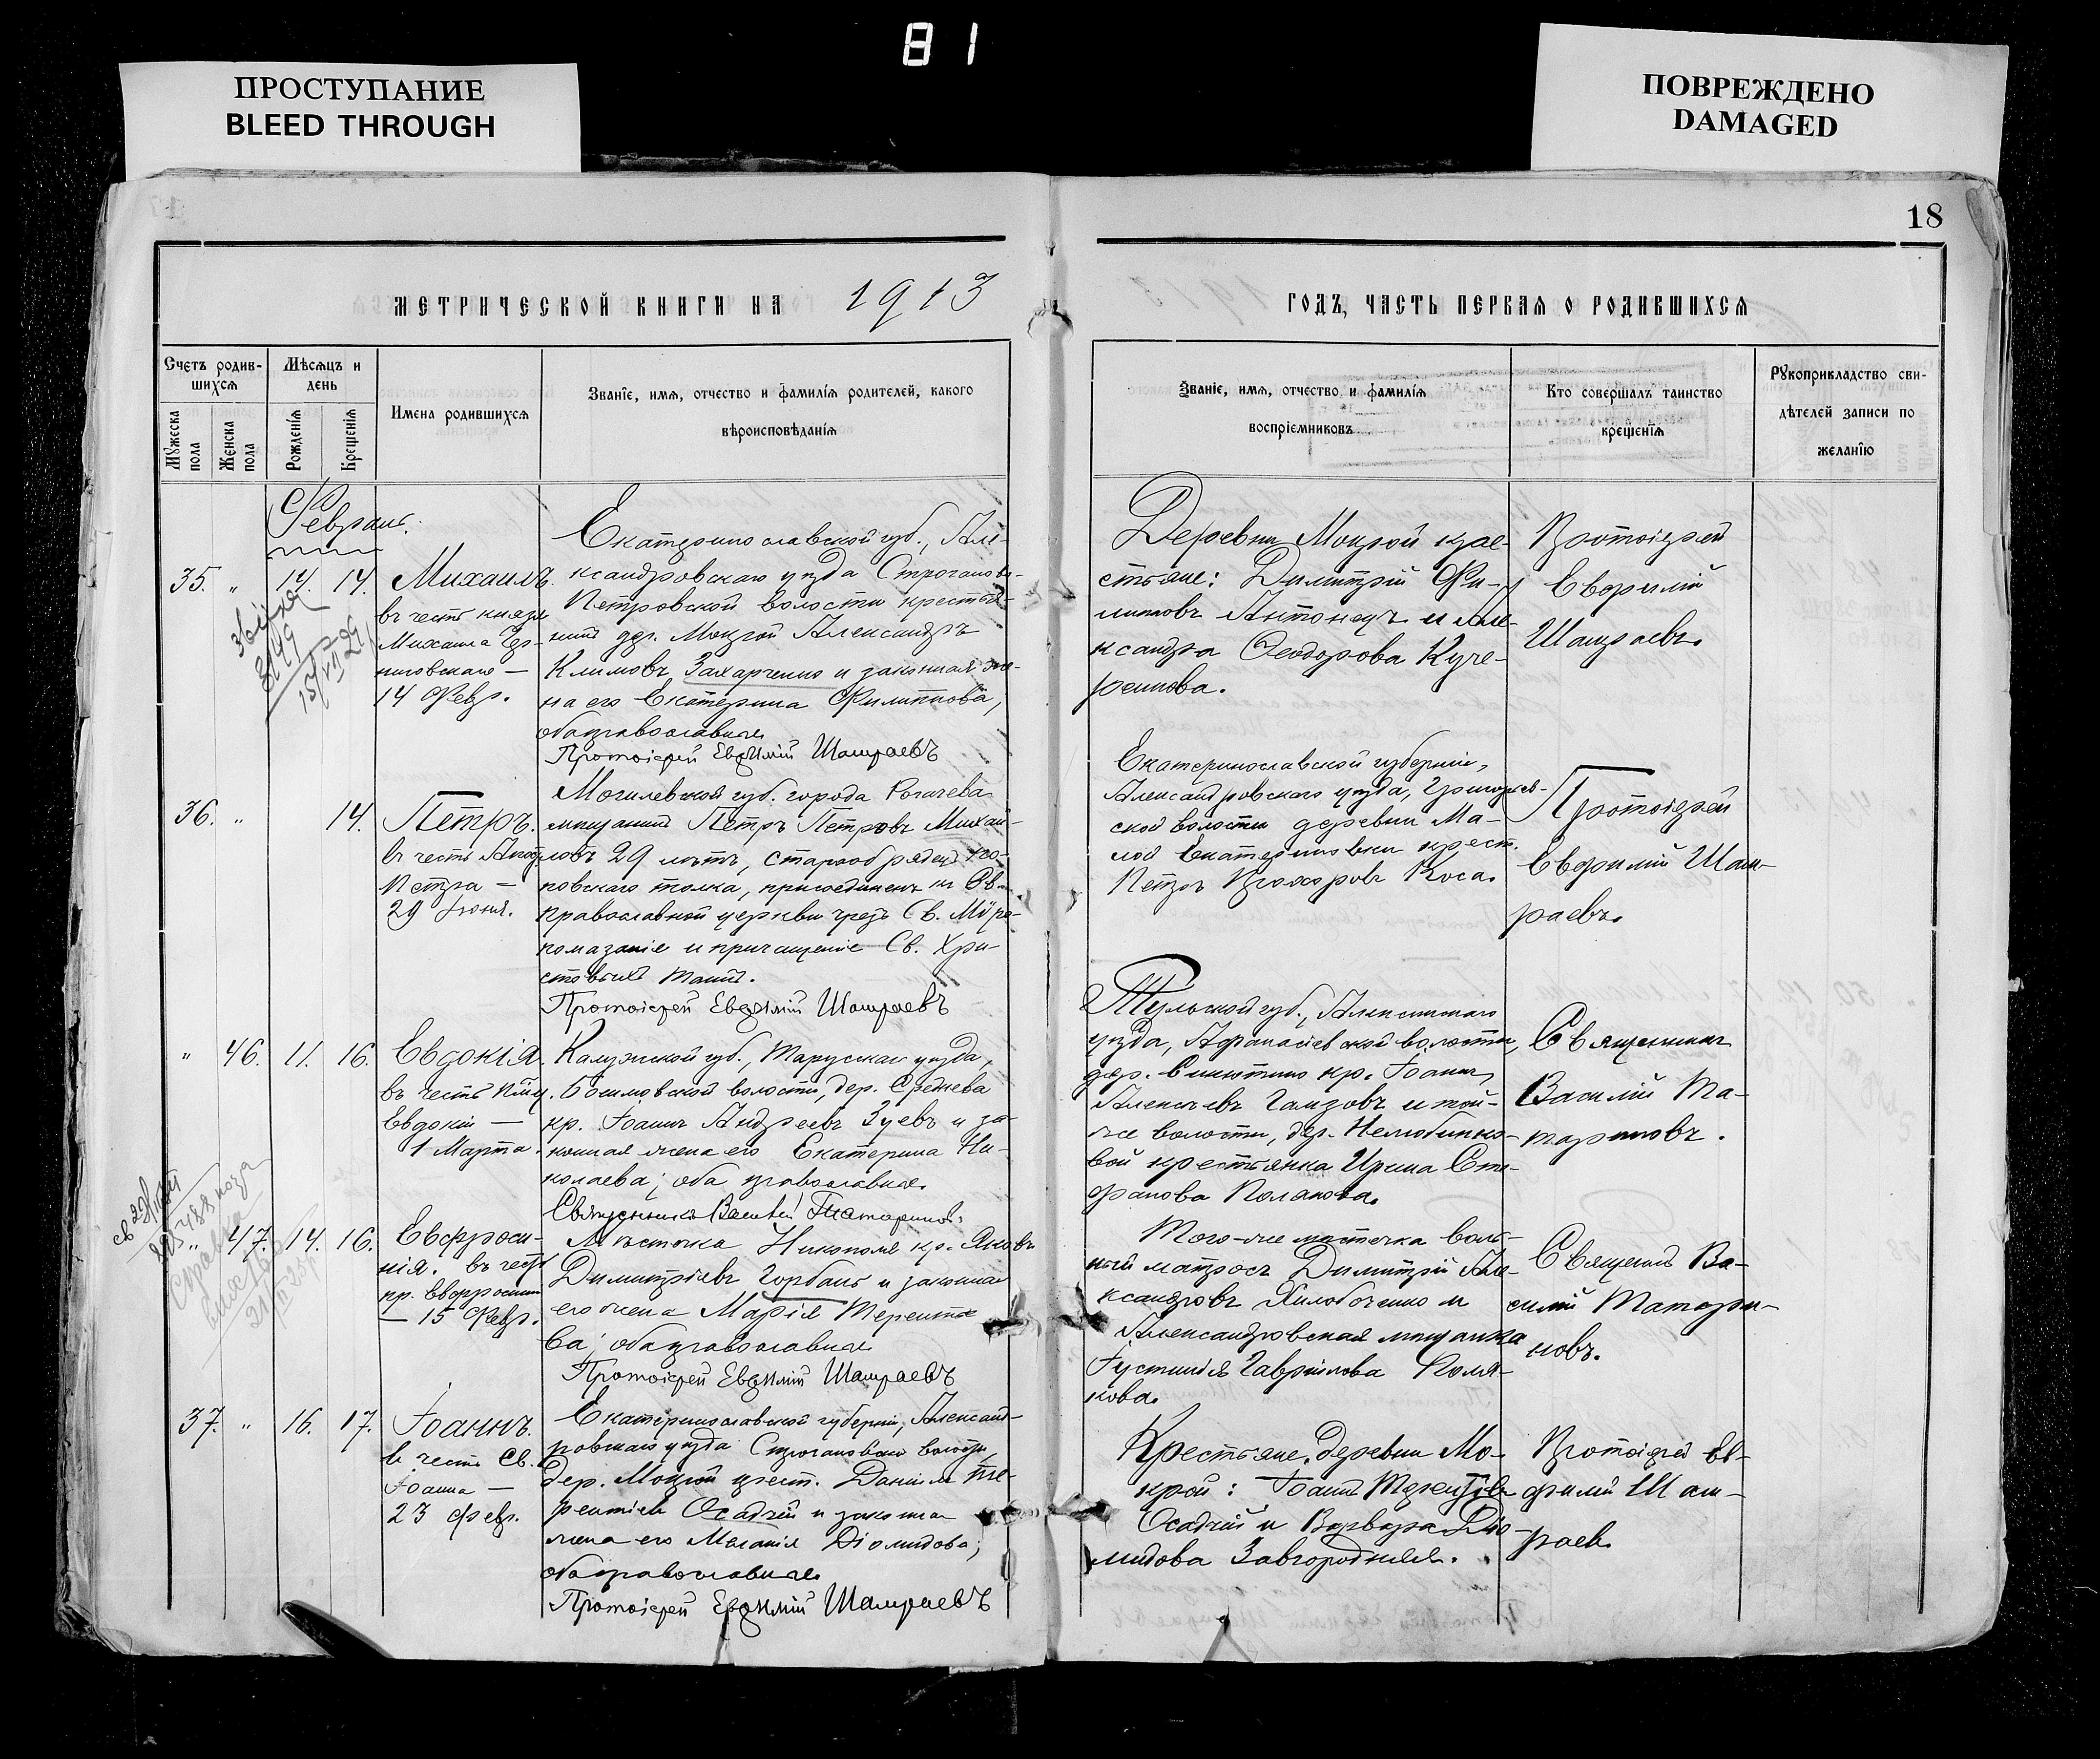 81
ПРОСТУПАНИЕ
BLEED THROUGH
ПОВРЕЖДЕНО
DAMAGED
18
МЕТРИЧЕСКОЙ КНИГИ НА 1913
ГОДЪ, ЧАСТЬ ПЕРВАЯ О РОДИВШИХСЯ
Счетъ родив-
шихся
Мѣсяцъ и
день
Мужеска
пола
Женска
пола
Рожденія
Крещенія
Имена родившихся
Званіе, имя, отчество и фамилія родителей, какого
вѣроисповѣданія
Званіе, имя, отчество и фамилія
воспріемниковъ
Кто совершалъ таинство
крещенія
Рукоприкладство сви-
дѣтелей записи по
желанію
Февраль.
35. „ 14. 14.
Михаилъ.
въ честь князя
Михаила Чер-
ниговскаго —
14 Февр.
Екатеринославской губ., Але-
ксандровскаго уѣзда Строганово-
Петровской волости крестья-
нинъ дер. Мокрой Александръ
Климовъ Захарченко и законная же-
на его Екатерина Филиппова,
оба православные.
Протоіерей Евфимій Шамраевъ
Деревни Мокрой кре-
стьяне: Димитрій Фи-
липповъ Антонецъ и Але-
ксандра Ѳеодорова Куче-
ренкова.
Протоіерей
Евфимій
Шамраевъ.
36. „ 14.
Петръ.
въ честь Апост.
Петра —
29 Іюня.
Могилевской губ. города Рогачева
мѣщанинъ Петръ Петровъ Михай-
ловъ 29 лѣтъ, старообрядецъ по-
повскаго толка, присоединенъ къ Св.
православной церкви чрезъ Св. Мѵро-
помазаніе и причащеніе Св. Хри-
стовыхъ Таинъ.
Протоіерей Евфимій Шамраевъ
Екатеринославской губерніи,
Александровскаго уѣзда, Григорьев-
ской волости деревни Ма-
лой Екатериновки крест.
Петръ Прохоровъ Коса.
Протоіерей
Евфимій Шам-
раевъ.
„ 46. 11. 16.
Евдокія.
въ честь Пмц.
Евдокіи —
1 Марта.
Калужской губ., Тарускаго уѣзда,
Боимовской волости, дер. Среднева
кр. Іоаннъ Андреевъ Зуевъ и за-
конная жена его Екатерина Ни-
колаева; оба православные.
Священникъ Василій Татариновъ.
Тульской губ., Алексинскаго
уѣзда, Аѳанасіевской волости,
дер. Синютино кр. Іоаннъ
Алексѣевъ Гамзовъ и той-
же волости, дер. Нелюбинко-
вой крестьянка Ирина Сте-
фанова Полакова.
Священникъ
Василій Та-
тариновъ.
„ 47. 14. 16.
Евфроси-
нія. въ честь
пр. Евфросиніи
— 15 Февр.
Мѣстечка Никополя кр. Яковъ
Димитріевъ Горбань и законная
его жена Марія Терентье-
ва; оба православные
Протоіерей Евфимій Шамраевъ
Того-же мѣстечка воль-
ный матросъ Димитрій Але-
ксандровъ Хилобоченко и
Александровская мѣщанка
Іустинія Гавріилова Поля-
кова.
Священникъ Ва-
силій Татари-
новъ.
37. „ 16. 17.
Іоаннъ.
въ честь Св.
Іоанна —
23 февр.
Екатеринославской губерніи, Александ-
ровскаго уѣзда Строгановской волости,
дер. Мокрой крест. Даніилъ Те-
рентіевъ Осадчій и законная
жена его Меланія Діомидова;
оба православные.
Протоіерей Евфимій Шамраевъ
Крестьяне деревни Мо-
крой: Іоаннъ Терентіевъ
Осадчій и Варвара Діо-
мидова Завгородняя.
Протоіерей Ев-
фимій Шам-
раевъ.